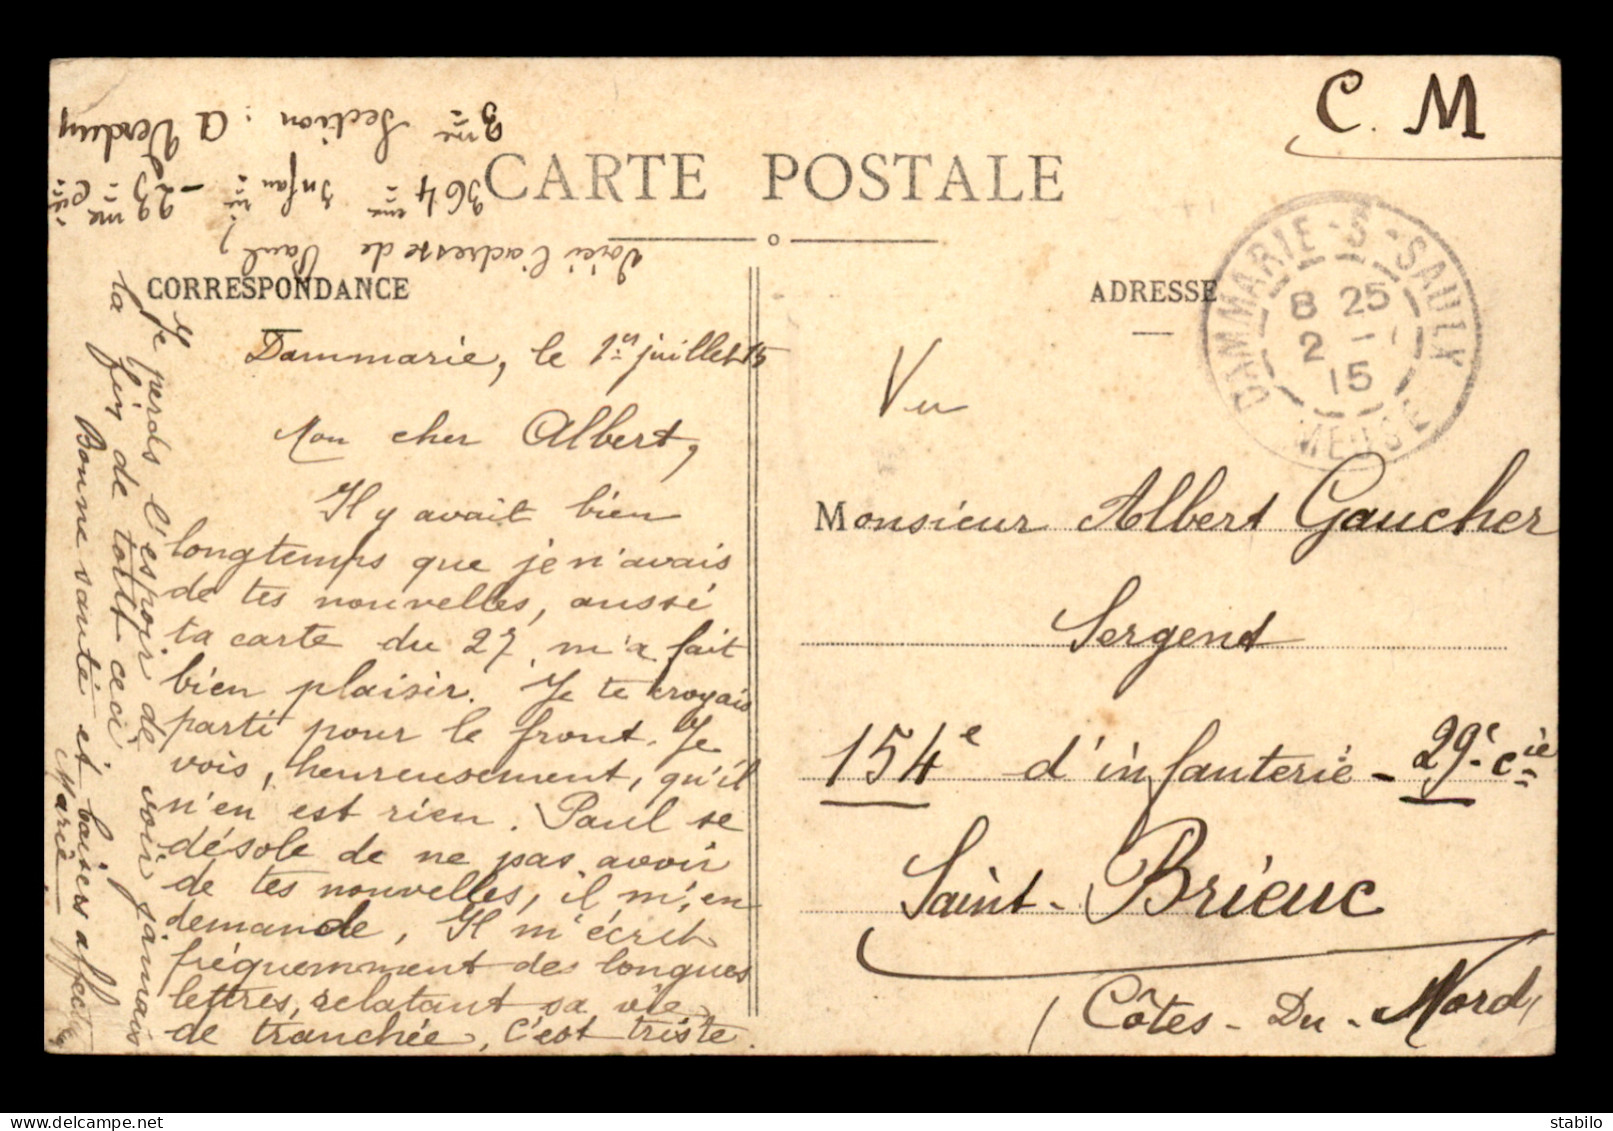 C. M
CARTE POSTALE
CORRESPONDANCE
Dammarie, le 1er juillet 15
Mon cher Albert,
Il y avait bien
longtemps que je n'avais
de tes nouvelles, aussi
ta carte du 27 m'a fait
bien plaisir. Je te croyais
parti pour le front. Je
vois, heureusement, qu'il
n'en est rien. Paul se
désole de ne pas avoir
de tes nouvelles, il m'en
demande, Il m'écrit
fréquemment des longues
lettres, relatant sa vie
de tranchée, c'est triste.
Je perds l'espoir de voir jamais
la fin de tout ceci.
Bonne santé et baisers affectueux
Marie
Voici l'adresse de Paul,
364ème Infanrie - 23me Cie
3me Section : à Verdun
ADRESSE
DAMMARIE-S-SAULX
8 25
2 -
15
MEUSE
Vu
Monsieur Albert Gaucher
Sergent
154e d'infanterie - 29e Cie
Saint-Brieuc
(Côtes-Du-Nord)
stabilo